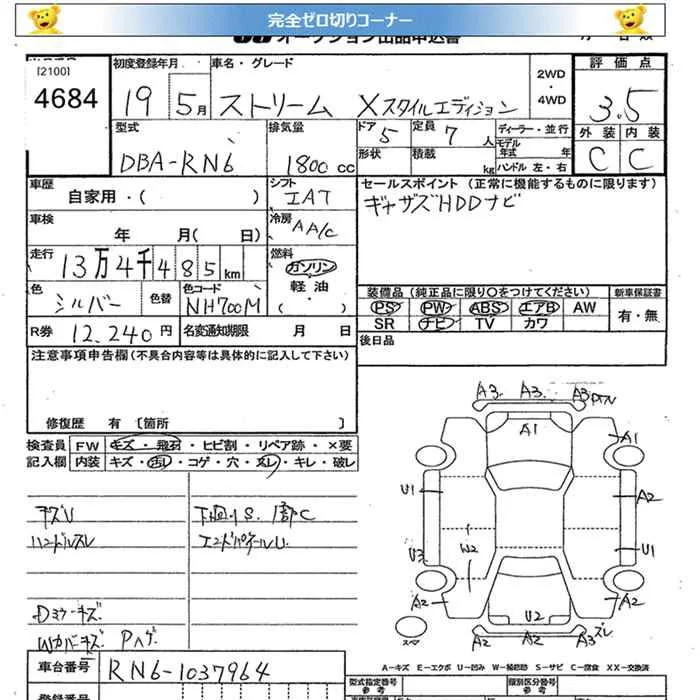 完全ゼロ切りコーナー
オークション出品申込書
[2100]
4684
初度登録年月
19 5月
車名・グレード
ストリーム Xスタイルエディション
2WD
・
4WD
評価点
3.5
外装 内装
C C
型式
DBA-RN6
排気量
1800 cc
ドア
5
定員
7 人
形状
積載
kg
ディーラー・並行
モデル年式 年
ハンドル 左・右
車歴
自家用・( )
シフト
IAT
セールスポイント (正常に機能するものに限ります)
ギャザズHDDナビ
車検
年 月( 日)
冷房
AA/C
走行
13万4千485km
燃料
ガソリン
軽油
・( )
色
シルバー
色替
色コード
NH700M
装備品 (純正品に限り○をつけてください)
PS PW ABS エアB AW
SR ナビ TV カワ
新車保証書
有・無
R券
12,240円
名変通知期限 月 日
後日品
注意事項申告欄(不具合内容等は具体的に記入して下さい)
修復歴 有 [箇所 ]
検査員
記入欄
FW キズ・飛石・ヒビ割・リペア跡・×要
内装 キズ・汚レ・コゲ・穴・スレ・キレ・破レ
キズU
ハンドルスレ
下回りS. 1部C
エンドパネルU.
Dミラーキズ
Wカバーキズ Pハゲ
A3 A3. A3
A1
A1
U1
A2
U3
W2
U1
A2
A2
U2
A2 A2 A3 ズレ
スマ
A-キズ E-エクボ U-凹み W-補修跡 S-サビ C-腐食 XX-交換済
車台番号
RN6-1037964
型式指定番号
参考
類別区分番号
参考